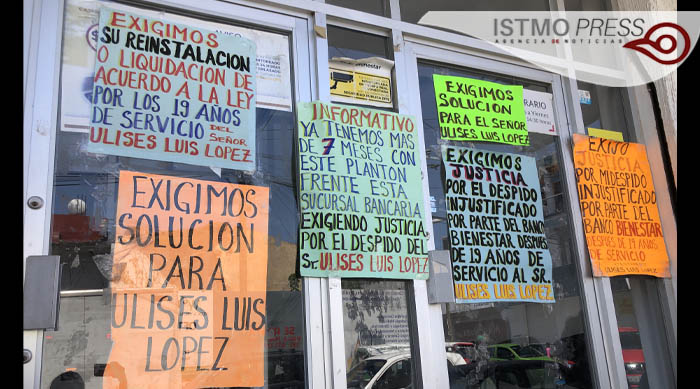 ISTMO PRESS
AGENCIA DE NOTICIAS
EXIGIMOS
SU REINSTALACION
O LIQUIDACION DE
ACUERDO A LA LEY
POR LOS 19 AÑOS
DE SERVICIO DEL SEÑOR
ULISES LUIS LOPEZ
EXIGIMOS
SOLUCION
PARA
ULISES LUIS
LOPEZ
INFORMATIVO
YA TENEMOS MAS
DE 7 MESES CON
ESTE PLANTON
FRENTE ESTA
SUCURSAL BANCARIA
EXIGIENDO JUSTICIA
POR EL DESPIDO DEL
Sr. ULISES LUIS LOPEZ
EXIGIMOS
SOLUCION
PARA EL SEÑOR
ULISES LUIS LOPEZ
EXIGIMOS
JUSTICIA
POR EL DESPIDO
INJUSTIFICADO
POR PARTE DEL BANCO
BIENESTAR DESPUES
DE 19 AÑOS DE
SERVICIO AL SR.
ULISES LUIS LOPEZ
EXIJO
JUSTICIA
POR MI DESPIDO
INJUSTIFICADO
POR PARTE DEL
BANCO BIENESTAR
DESPUES DE 19 AÑOS
DE SERVICIO
ULISES LUIS LOPEZ
Bienestar
HORARIO